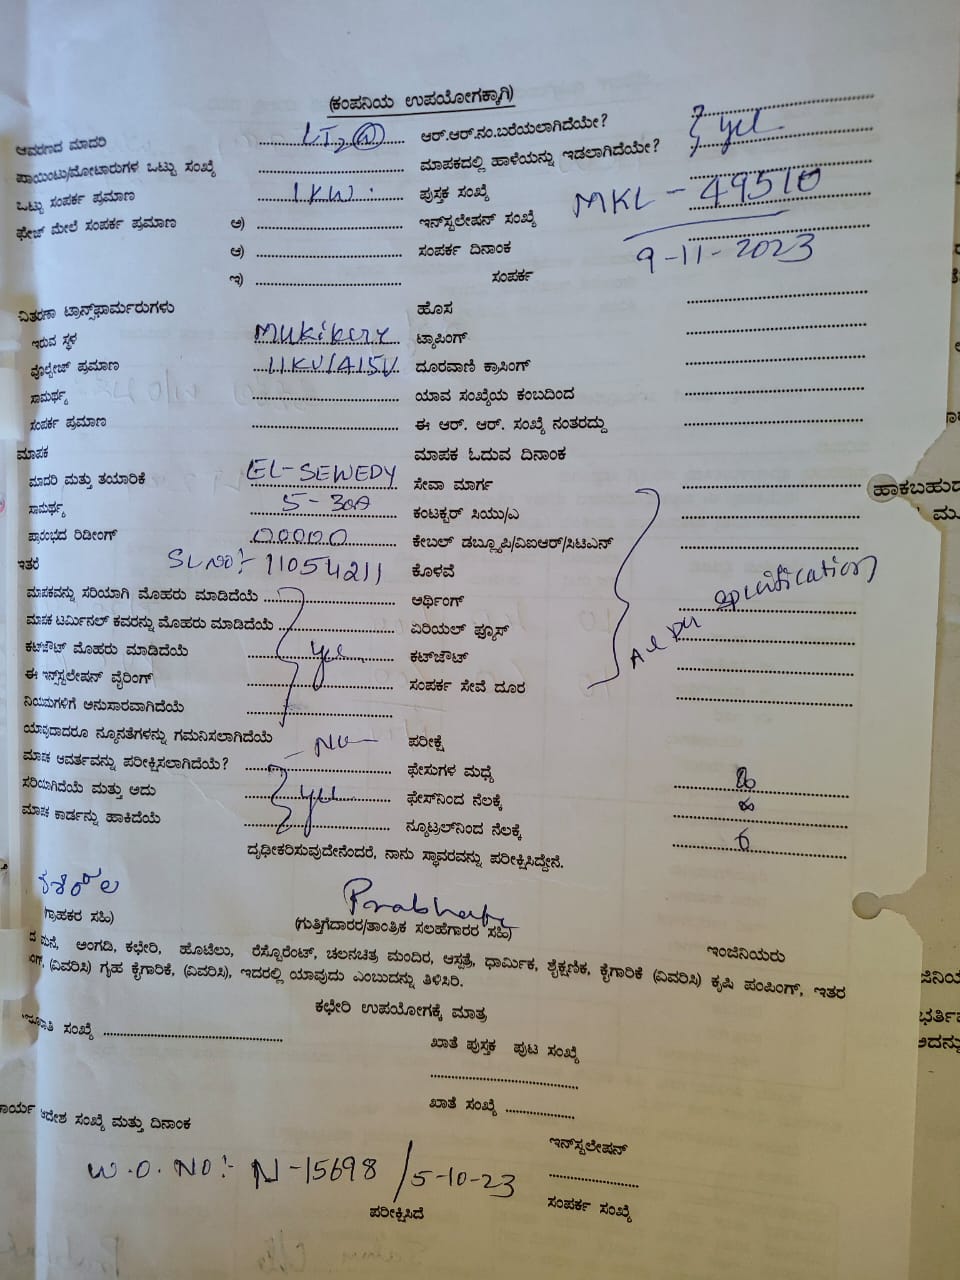 (ಕಂಪನಿಯ ಉಪಯೋಗಕ್ಕಾಗಿ)
ಆವರಣದ ಮಾದರಿ LT2(a) ಆರ್.ಆರ್.ನಂ.ಬರೆಯಲಾಗಿದೆಯೇ? } yes
ಪಾಯಿಂಟು/ಮೋಟಾರುಗಳ ಒಟ್ಟು ಸಂಖ್ಯೆ ಮಾಪಕದಲ್ಲಿ ಹಾಳೆಯನ್ನು ಇಡಲಾಗಿದೆಯೇ?
ಒಟ್ಟು ಸಂಪರ್ಕ ಪ್ರಮಾಣ 1KW. ಪುಸ್ತಕ ಸಂಖ್ಯೆ
ಫೇಜ್ ಮೇಲೆ ಸಂಪರ್ಕ ಪ್ರಮಾಣ ಅ) ಇನ್‌ಸ್ಟಲೇಷನ್ ಸಂಖ್ಯೆ MKL - 49510
ಆ) ಸಂಪರ್ಕ ದಿನಾಂಕ 9-11-2023
ಇ) ಸಂಪರ್ಕ
ವಿತರಣಾ ಟ್ರಾನ್ಸ್‌ಫಾರ್ಮರುಗಳು ಹೊಸ
ಇರುವ ಸ್ಥಳ ಟ್ಯಾಪಿಂಗ್
ವೊಲ್ಟೇಜ್ ಪ್ರಮಾಣ 11KV/415V ದೂರವಾಣಿ ಕ್ರಾಸಿಂಗ್
ಸಾಮರ್ಥ್ಯ ಯಾವ ಸಂಖ್ಯೆಯ ಕಂಬದಿಂದ
ಸಂಪರ್ಕ ಪ್ರಮಾಣ ಈ ಆರ್. ಆರ್. ಸಂಖ್ಯೆ ನಂತರದ್ದು
ಮಾಪಕ ಮಾಪಕ ಓದುವ ದಿನಾಂಕ
ಮಾದರಿ ಮತ್ತು ತಯಾರಿಕೆ EL-SEWEDY ಸೇವಾ ಮಾರ್ಗ
ಸಾಮರ್ಥ್ಯ 5-30A ಕಂಟಕ್ಟರ್ ಸಿಯು/ಎ
ಪ್ರಾರಂಭದ ರಿಡೀಂಗ್ 00000 ಕೇಬಲ್ ಡಬ್ಲ್ಯೂಪಿ/ವಿಐಆರ್/ಸಿಟಿಎನ್
ಇತರೆ SL NO:- 11054211 ಕೊಳವೆ
ಮಾಪಕವನ್ನು ಸರಿಯಾಗಿ ಮೊಹರು ಮಾಡಿದೆಯೆ ಆರ್ಥಿಂಗ್ specification
ಮಾಪಕ ಟರ್ಮಿನಲ್ ಕವರನ್ನು ಮೊಹರು ಮಾಡಿದೆಯೆ ಏರಿಯಲ್ ಫ್ಯೂಸ್
ಕಟ್‌ಜೌಟ್ ಮೊಹರು ಮಾಡಿದೆಯೆ yes ಕಟ್‌ಜೌಟ್
ಈ ಇನ್‌ಸ್ಟಲೇಷನ್ ವೈರಿಂಗ್ ಸಂಪರ್ಕ ಸೇವೆ ದೂರ
ನಿಯಮಗಳಿಗೆ ಅನುಸಾರವಾಗಿದೆಯೆ
ಯಾವುದಾದರೂ ನ್ಯೂನತೆಗಳನ್ನು ಗಮನಿಸಲಾಗಿದೆಯೆ - No - ಪರೀಕ್ಷೆ
ಮಾಪಕ ಆವರ್ತವನ್ನು ಪರೀಕ್ಷಿಸಲಾಗಿದೆಯೆ? ಫೇಸುಗಳ ಮಧ್ಯೆ
ಸರಿಯಾಗಿದೆಯೆ ಮತ್ತು ಅದು yes ಫೇಸ್‌ನಿಂದ ನೆಲಕ್ಕೆ
ಮಾಪಕ ಕಾರ್ಡನ್ನು ಹಾಕಿದೆಯೆ ನ್ಯೂಟ್ರಲ್‌ನಿಂದ ನೆಲಕ್ಕೆ
ದೃಢೀಕರಿಸುವುದೇನೆಂದರೆ, ನಾನು ಸ್ಥಾವರವನ್ನು ಪರೀಕ್ಷಿಸಿದ್ದೇನೆ.
ಗ್ರಾಹಕರ ಸಹಿ) (ಗುತ್ತಿಗೆದಾರರ/ತಾಂತ್ರಿಕ ಸಲಹೆಗಾರರ ಸಹಿ) ಇಂಜಿನಿಯರು
ಮನೆ, ಅಂಗಡಿ, ಕಛೇರಿ, ಹೊಟೆಲು, ರೆಸ್ಟೋರೆಂಟ್, ಚಲನಚಿತ್ರ ಮಂದಿರ, ಆಸ್ಪತ್ರೆ, ಧಾರ್ಮಿಕ, ಶೈಕ್ಷಣಿಕ, ಕೈಗಾರಿಕೆ (ವಿವರಿಸಿ) ಕೃಷಿ ಪಂಪಿಂಗ್, ಇತರ
(ವಿವರಿಸಿ) ಗೃಹ ಕೈಗಾರಿಕೆ, (ವಿವರಿಸಿ), ಇದರಲ್ಲಿ ಯಾವುದು ಎಂಬುದನ್ನು ತಿಳಿಸಿರಿ.
ಕಛೇರಿ ಉಪಯೋಗಕ್ಕೆ ಮಾತ್ರ
ಸಂಖ್ಯೆ ಖಾತೆ ಪುಸ್ತಕ ಪುಟ ಸಂಖ್ಯೆ
ಖಾತೆ ಸಂಖ್ಯೆ
ಆದೇಶ ಸಂಖ್ಯೆ ಮತ್ತು ದಿನಾಂಕ
ಇನ್‌ಸ್ಟಲೇಷನ್
W.O.NO:- N-15698 / 5-10-23
ಸಂಪರ್ಕ ಸಂಖ್ಯೆ
ಪರೀಕ್ಷಿಸಿದೆ